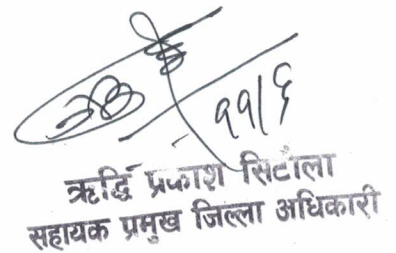 ११/६
ऋद्धि प्रकाश सिटौला
सहायक प्रमुख जिल्ला अधिकारी